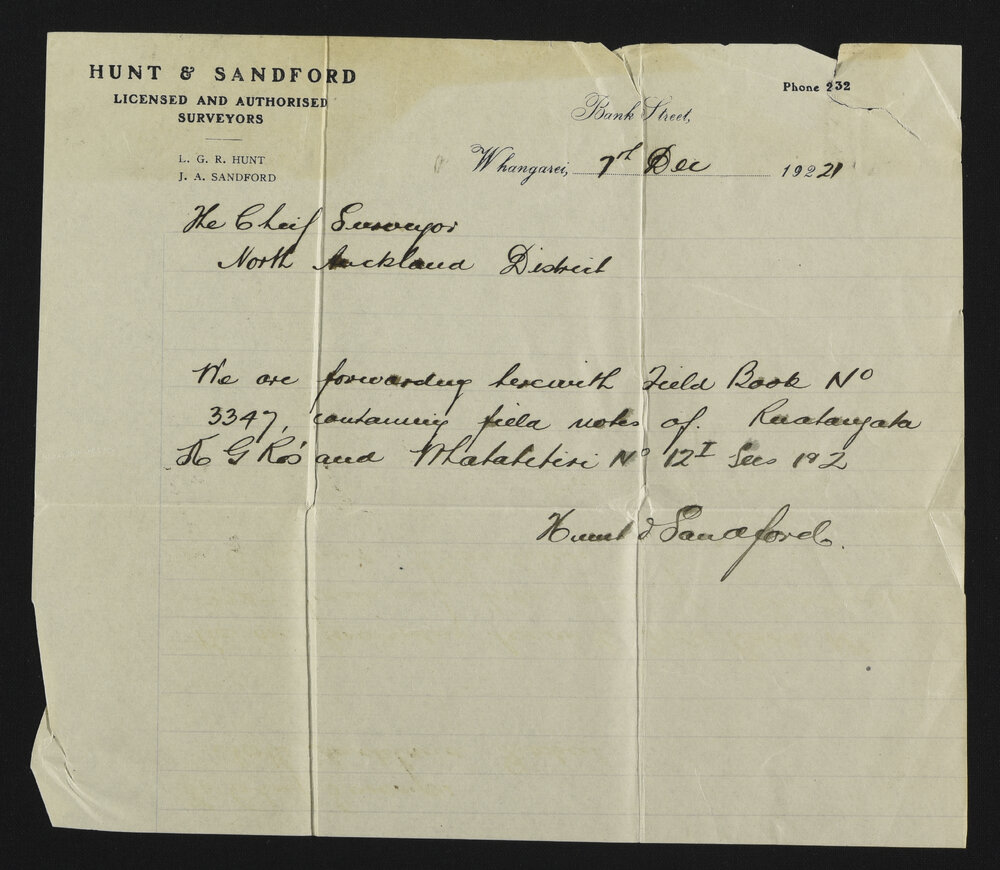 HUNT & SANDFORD
LICENSED AND AUTHORISED
SURVEYORS
L. G. R. HUNT
J. A. SANDFORD
Phone 232
Bank Street,
Whangarei, 7th Dec 1921
The Cheif Surveyor
North Auckland District
We are forwarding herewith Field Book No
3347, containing field notes of. Ruatangata
and No 12I Secs 1 & 2
Hunt & Sandford.